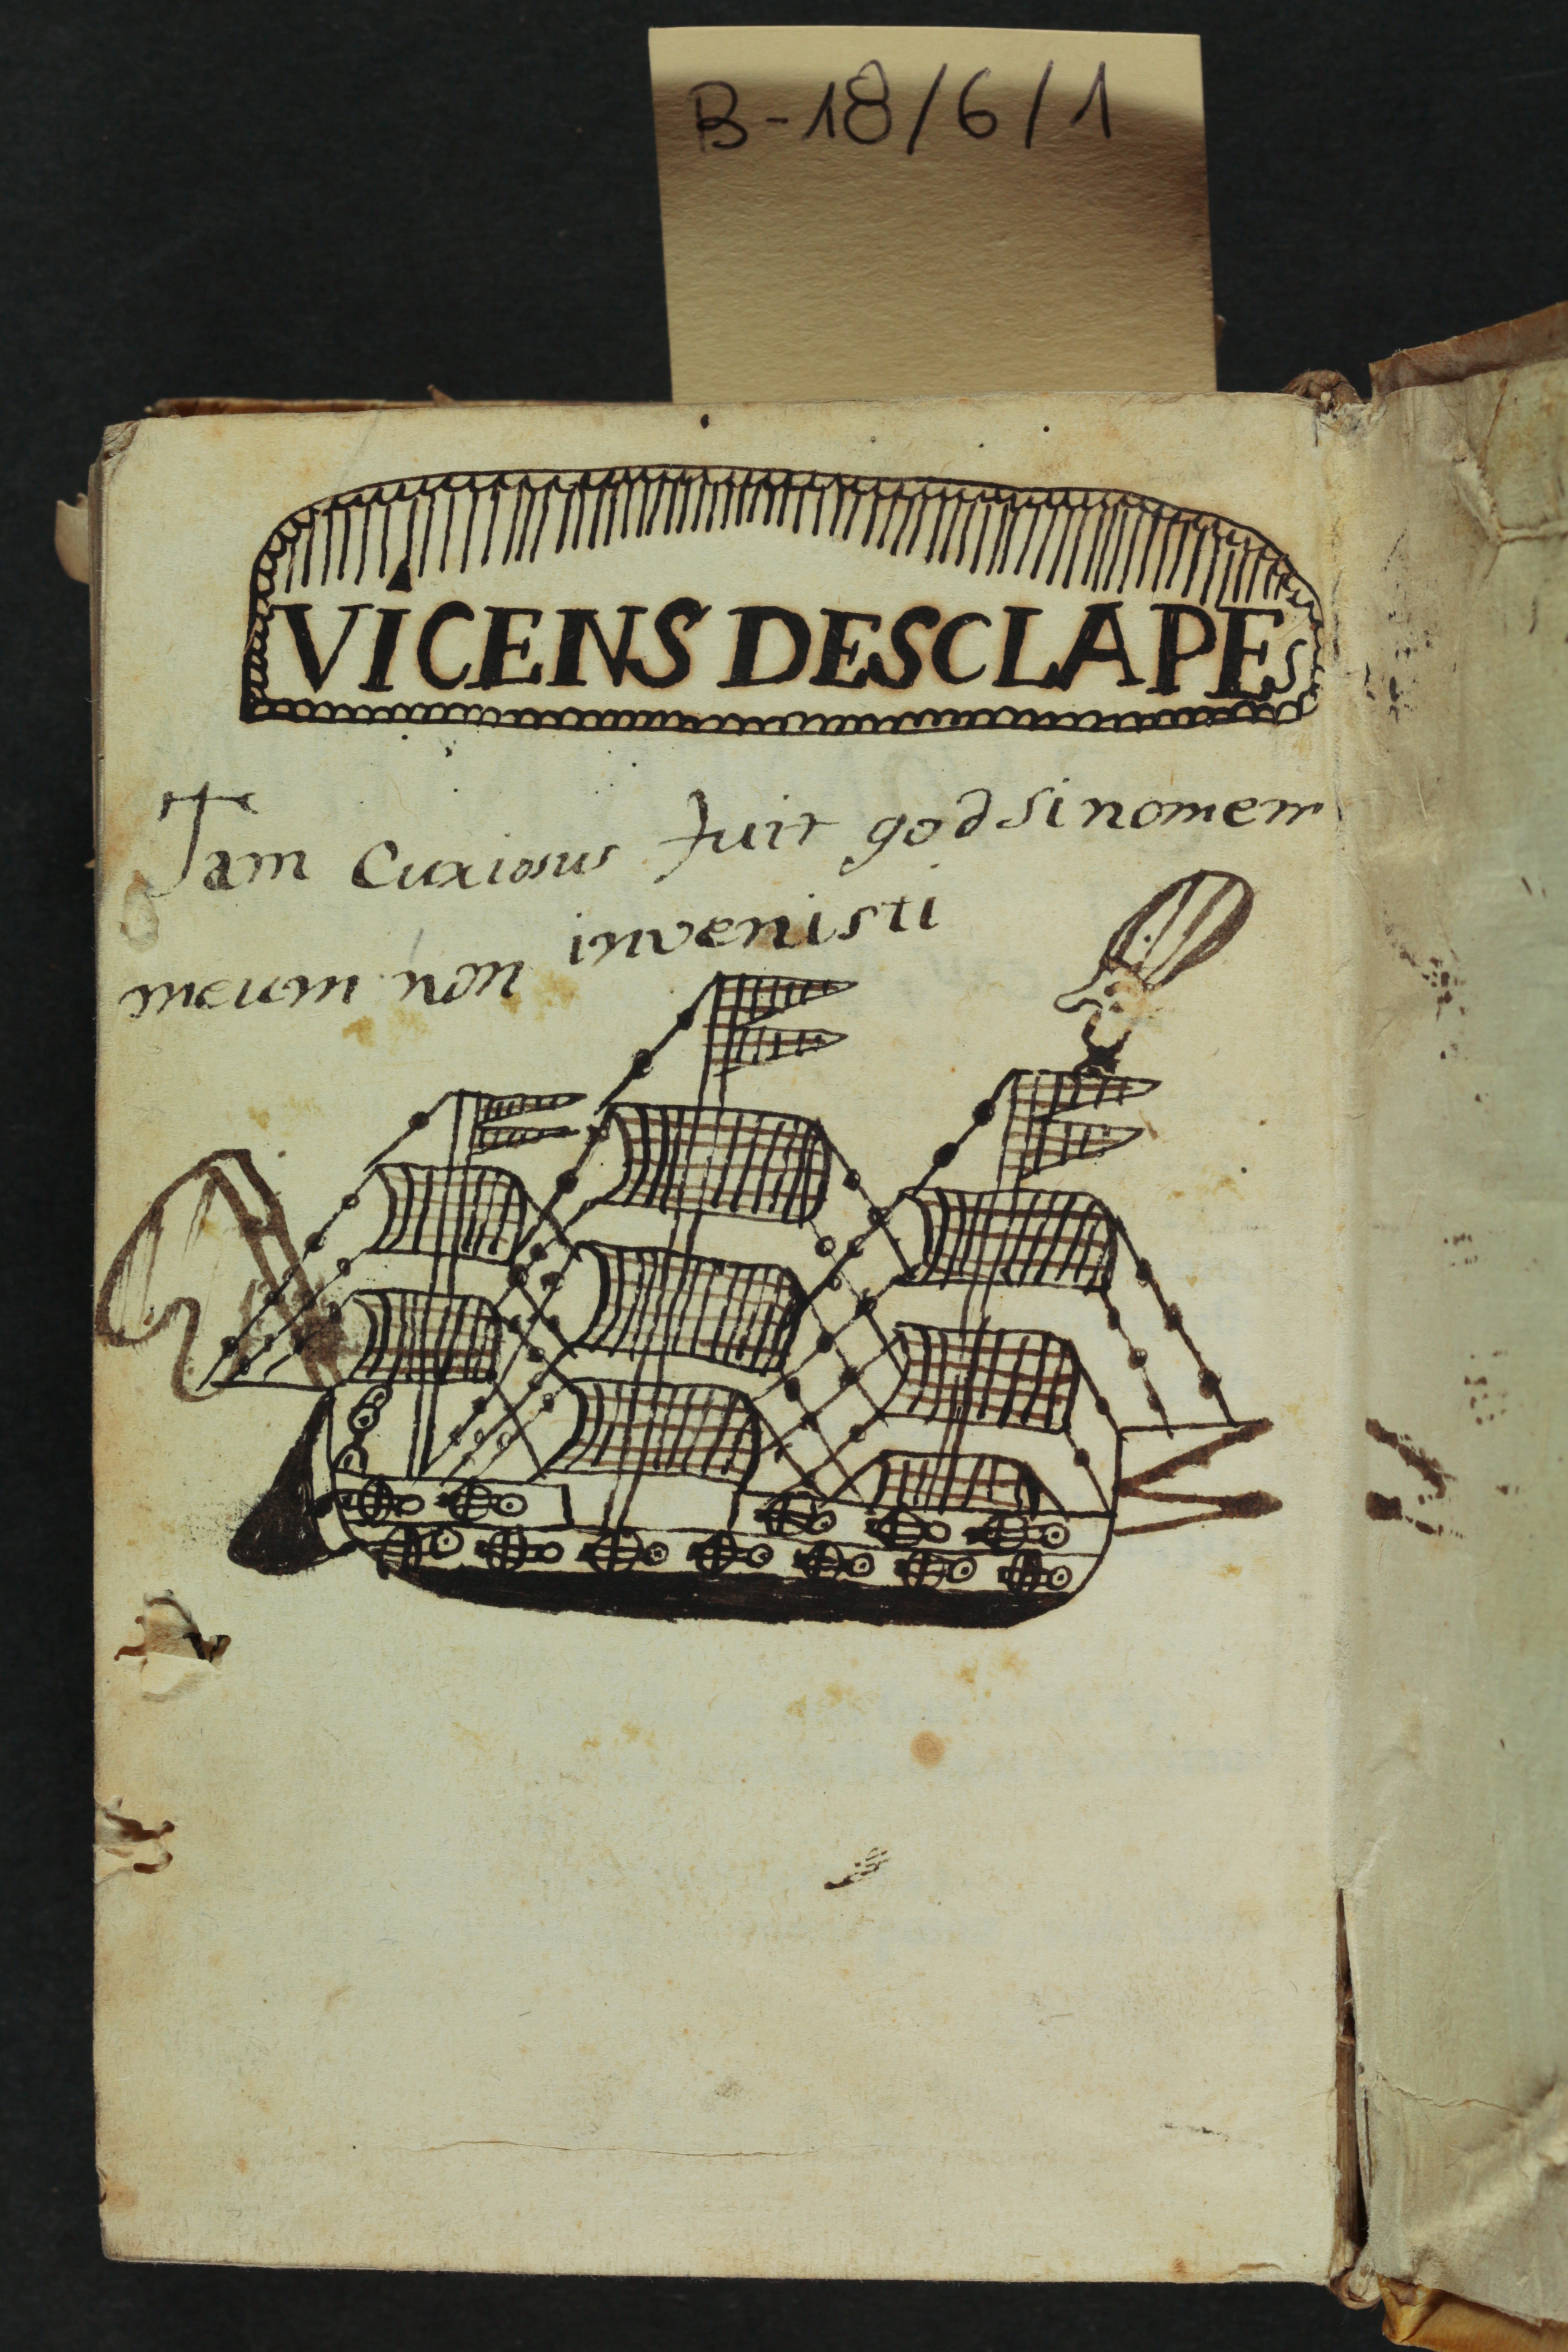 B-18/6/1
VİCENS DESCLAPES
Tam Curiosus fuit god si nomem
meum non invenisti